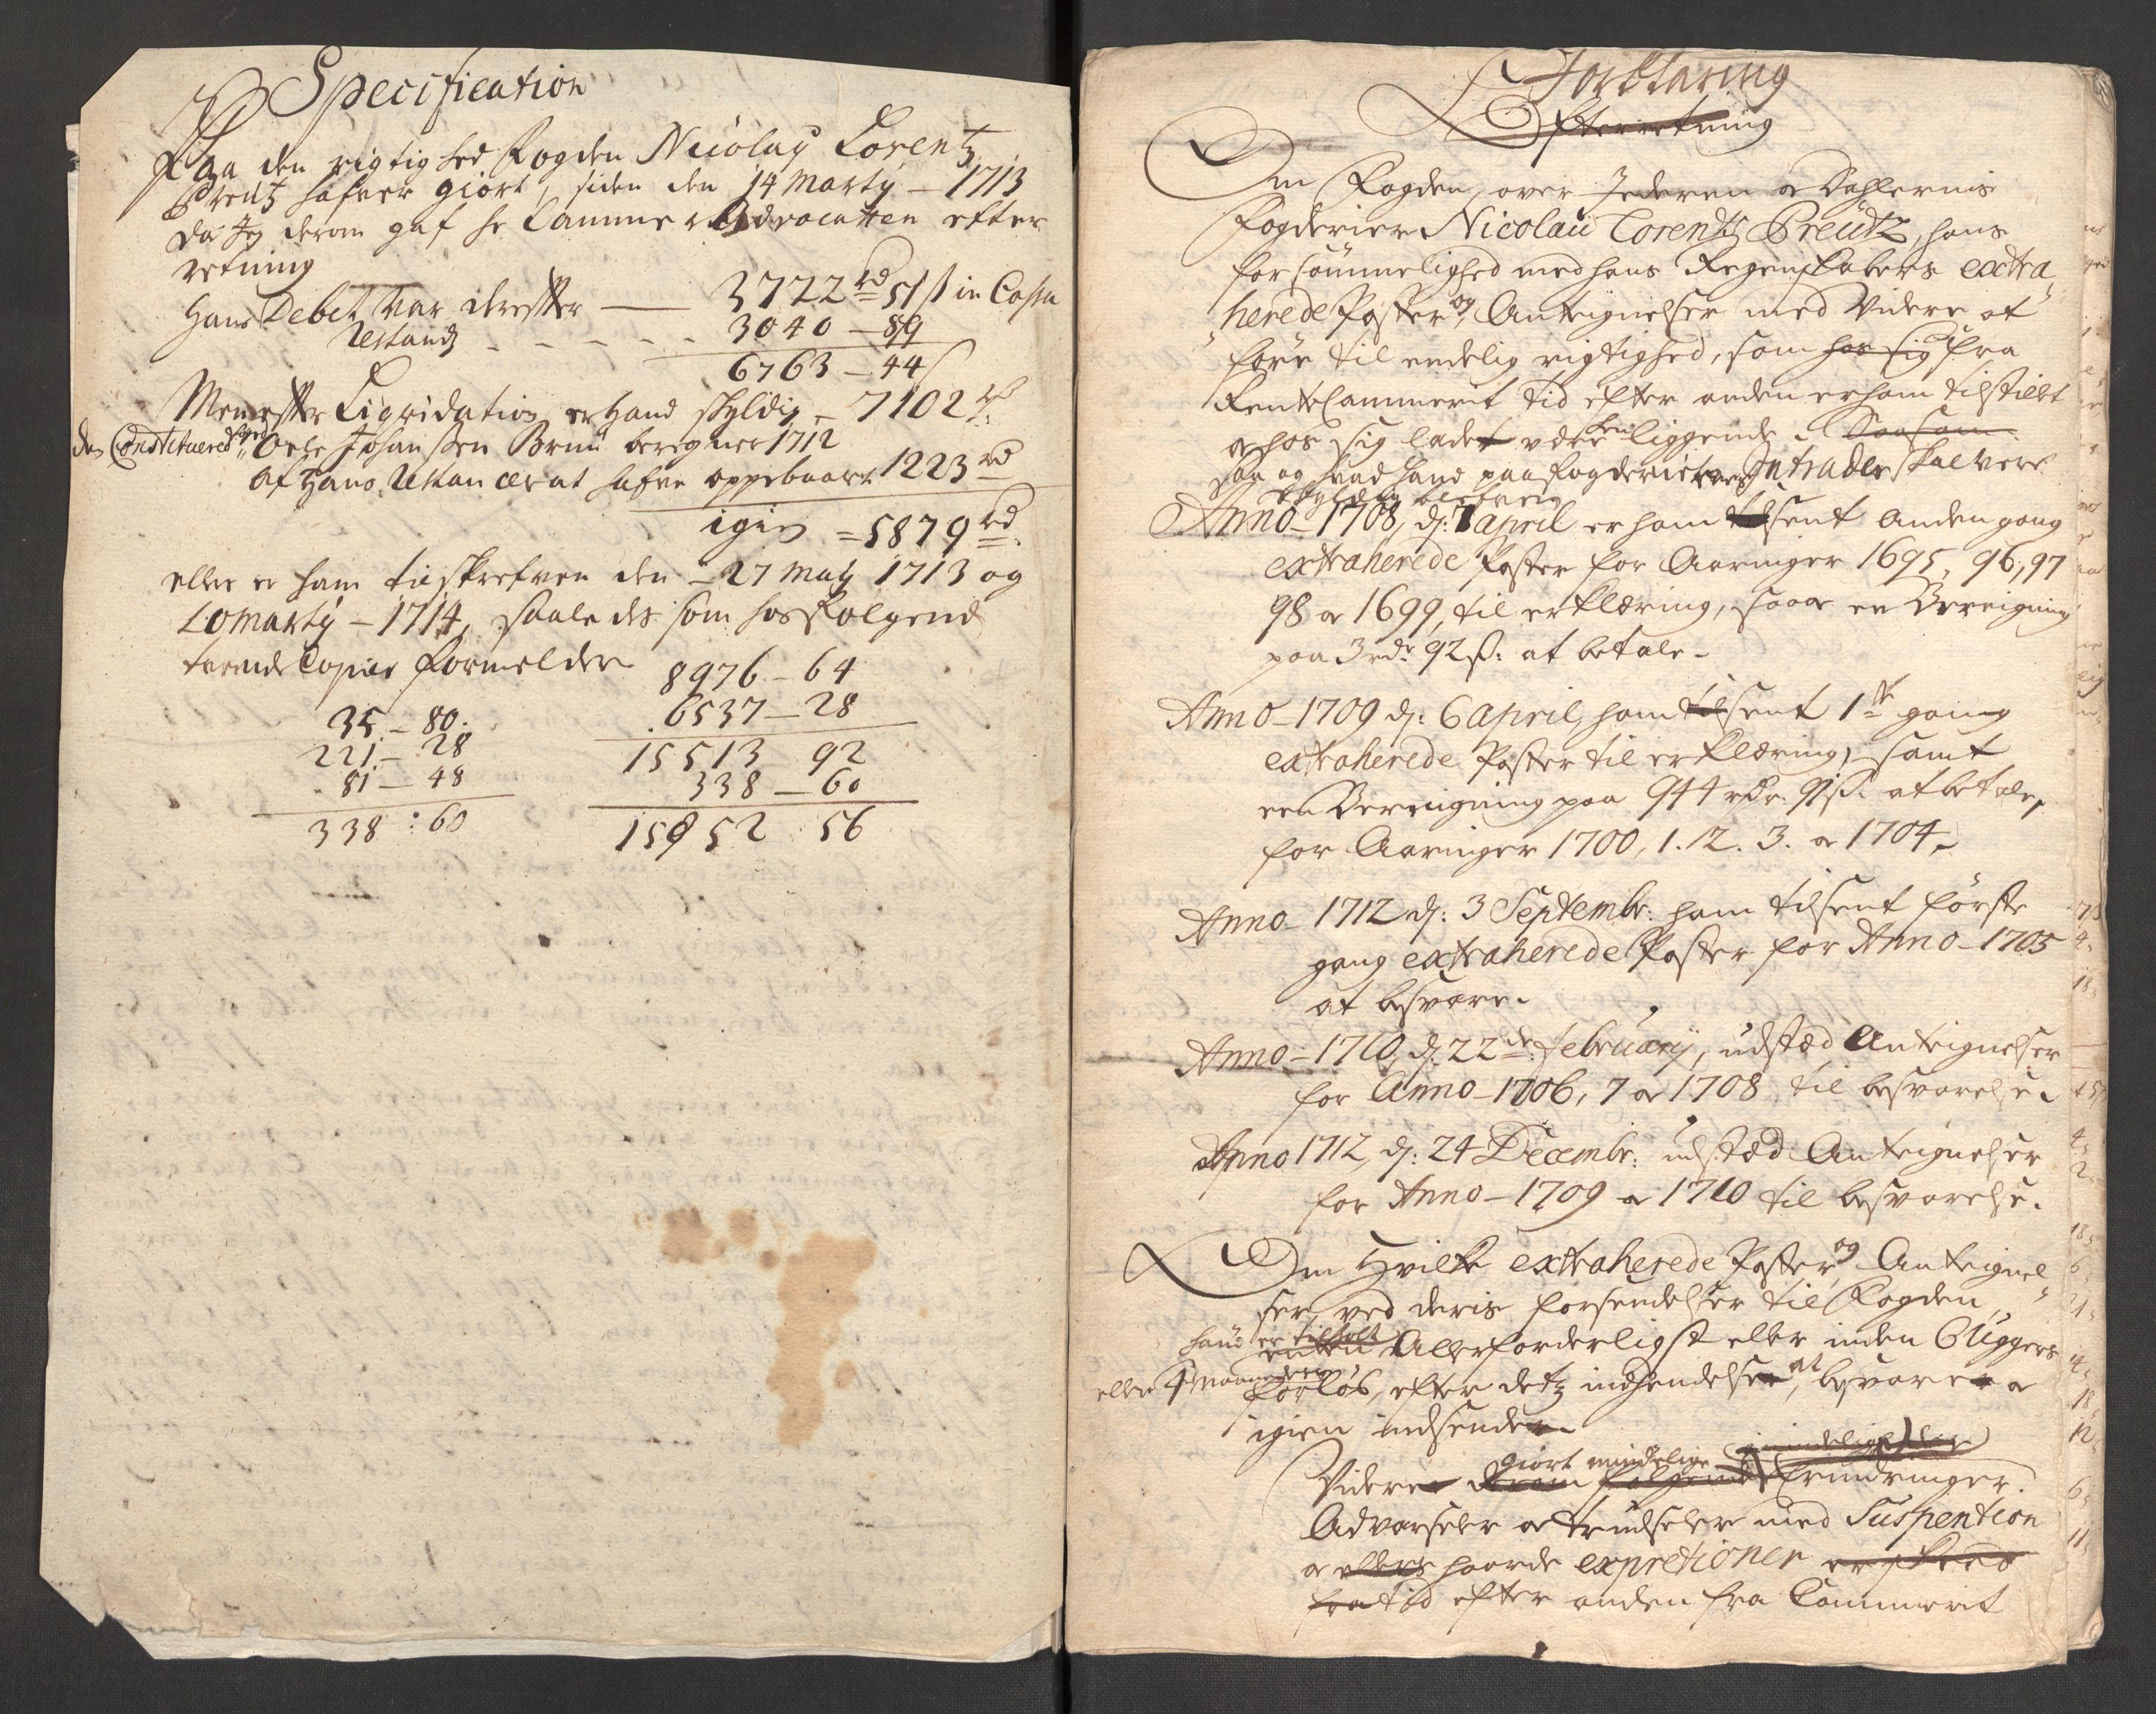 Specification
Paa den rigtighed Fogden Nicolay Lorentz
Preutz hafver giort, siden den 14 Martij - 1713
da Jeg derom gaf hr Cammer Advocatten efter
retning
Hans Debet var derefter — 3722 rd 51 ß in Cassa
Restands - - - - 3040 - 89
6763 - 44
Men efter Liqvidation er hand skyldig - 7102 rd
den Constituered foged Oele Johansen Bruu beregner 1712
af Hans Restancer at hafve oppebaaret 1223 rd
igien = 5879 rd
eller er ham tilskrefven den - 27 Maij 1713 og
10 Martij - 1714, saaledes som hosfølgende
tvende Copier formelder
8976 - 64
6537 - 28
15513 92
338 - 60
15852 56
35 - 80.
221 - 28
81 - 48
338 : 60
Forklaring
Efterretning
Om Fogden, over Jederen og Dahlernis
Fogderier Nicolau Lorentz Preutz, hans
forsømmelighed med hans Regenskabers extra
herede Poster, og Antegnelser med videre at
føre til endelig rigtighed, som hos sig fra
RenteCammerit tid efter anden er ham tilstillet
og hos sig ladet være liggende. Saasom
saa og hvad hand paa Fogderiets Intrader skal være
skyldig bleven
Anno - 1708, dj: 7 April er ham tilsent anden gang
extraherede Poster for Aaringer 1695, 96, 97
98 og 1699, til erklæring, samt en Beregning
paa 3 rdr 92 ß: at betale -
Anno - 1709 dj: 6 April, ham tilsent 1ste gang
extraherede Poster til erklæring, samt
een Beregning paa 944 rdr. 91 ß. at betale,
for Aaringer 1700, 1. 12. 3. og 1704 -
Anno - 1712 dj: 3 Septembr: ham tilsent første
gang extraherede Poster for Anno - 1705
at besvare.
Anno - 1710, dj. 22de February, udstæd Antegnelser
for Anno - 1706, 7 og 1708 til besvarelse.
Anno 1712, dj: 24 Decembr: udstæd Antegnelser
for Anno - 1709 og 1710 til besvarelse.
Om Hvilke extraherede Poster, og Antegnel
ser, ved deris forsendelser til Fogden,
hand er tilholt Allerforderligst eller inden 6 Uggers
eller 4 Maaneders forløb, efter detz indsendelse, at besvare og
igien indsende.
giort mindelige
Videre derom følgende Erindringer.
Advarseler og trudseler med Suspention
og ellers haarde expretioner er skeed
fra tid efter anden fra Cammerit